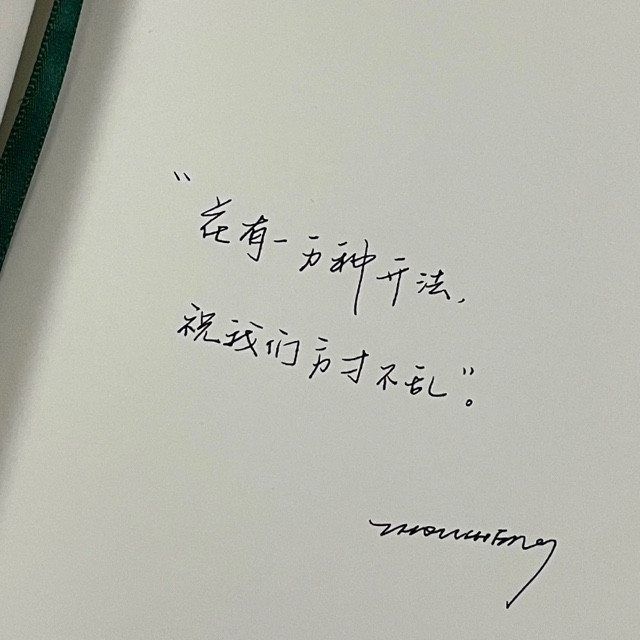 “花有一万种开法，
祝我们方寸不乱”。